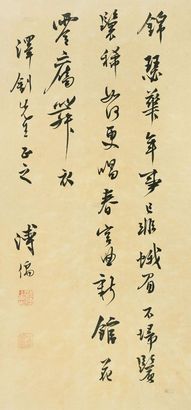 錦瑟華年事已非蛾眉不掃鬢
鬟稀如何更唱春宮曲新館花
零舊舞衣
澤釗先生正之
溥儒